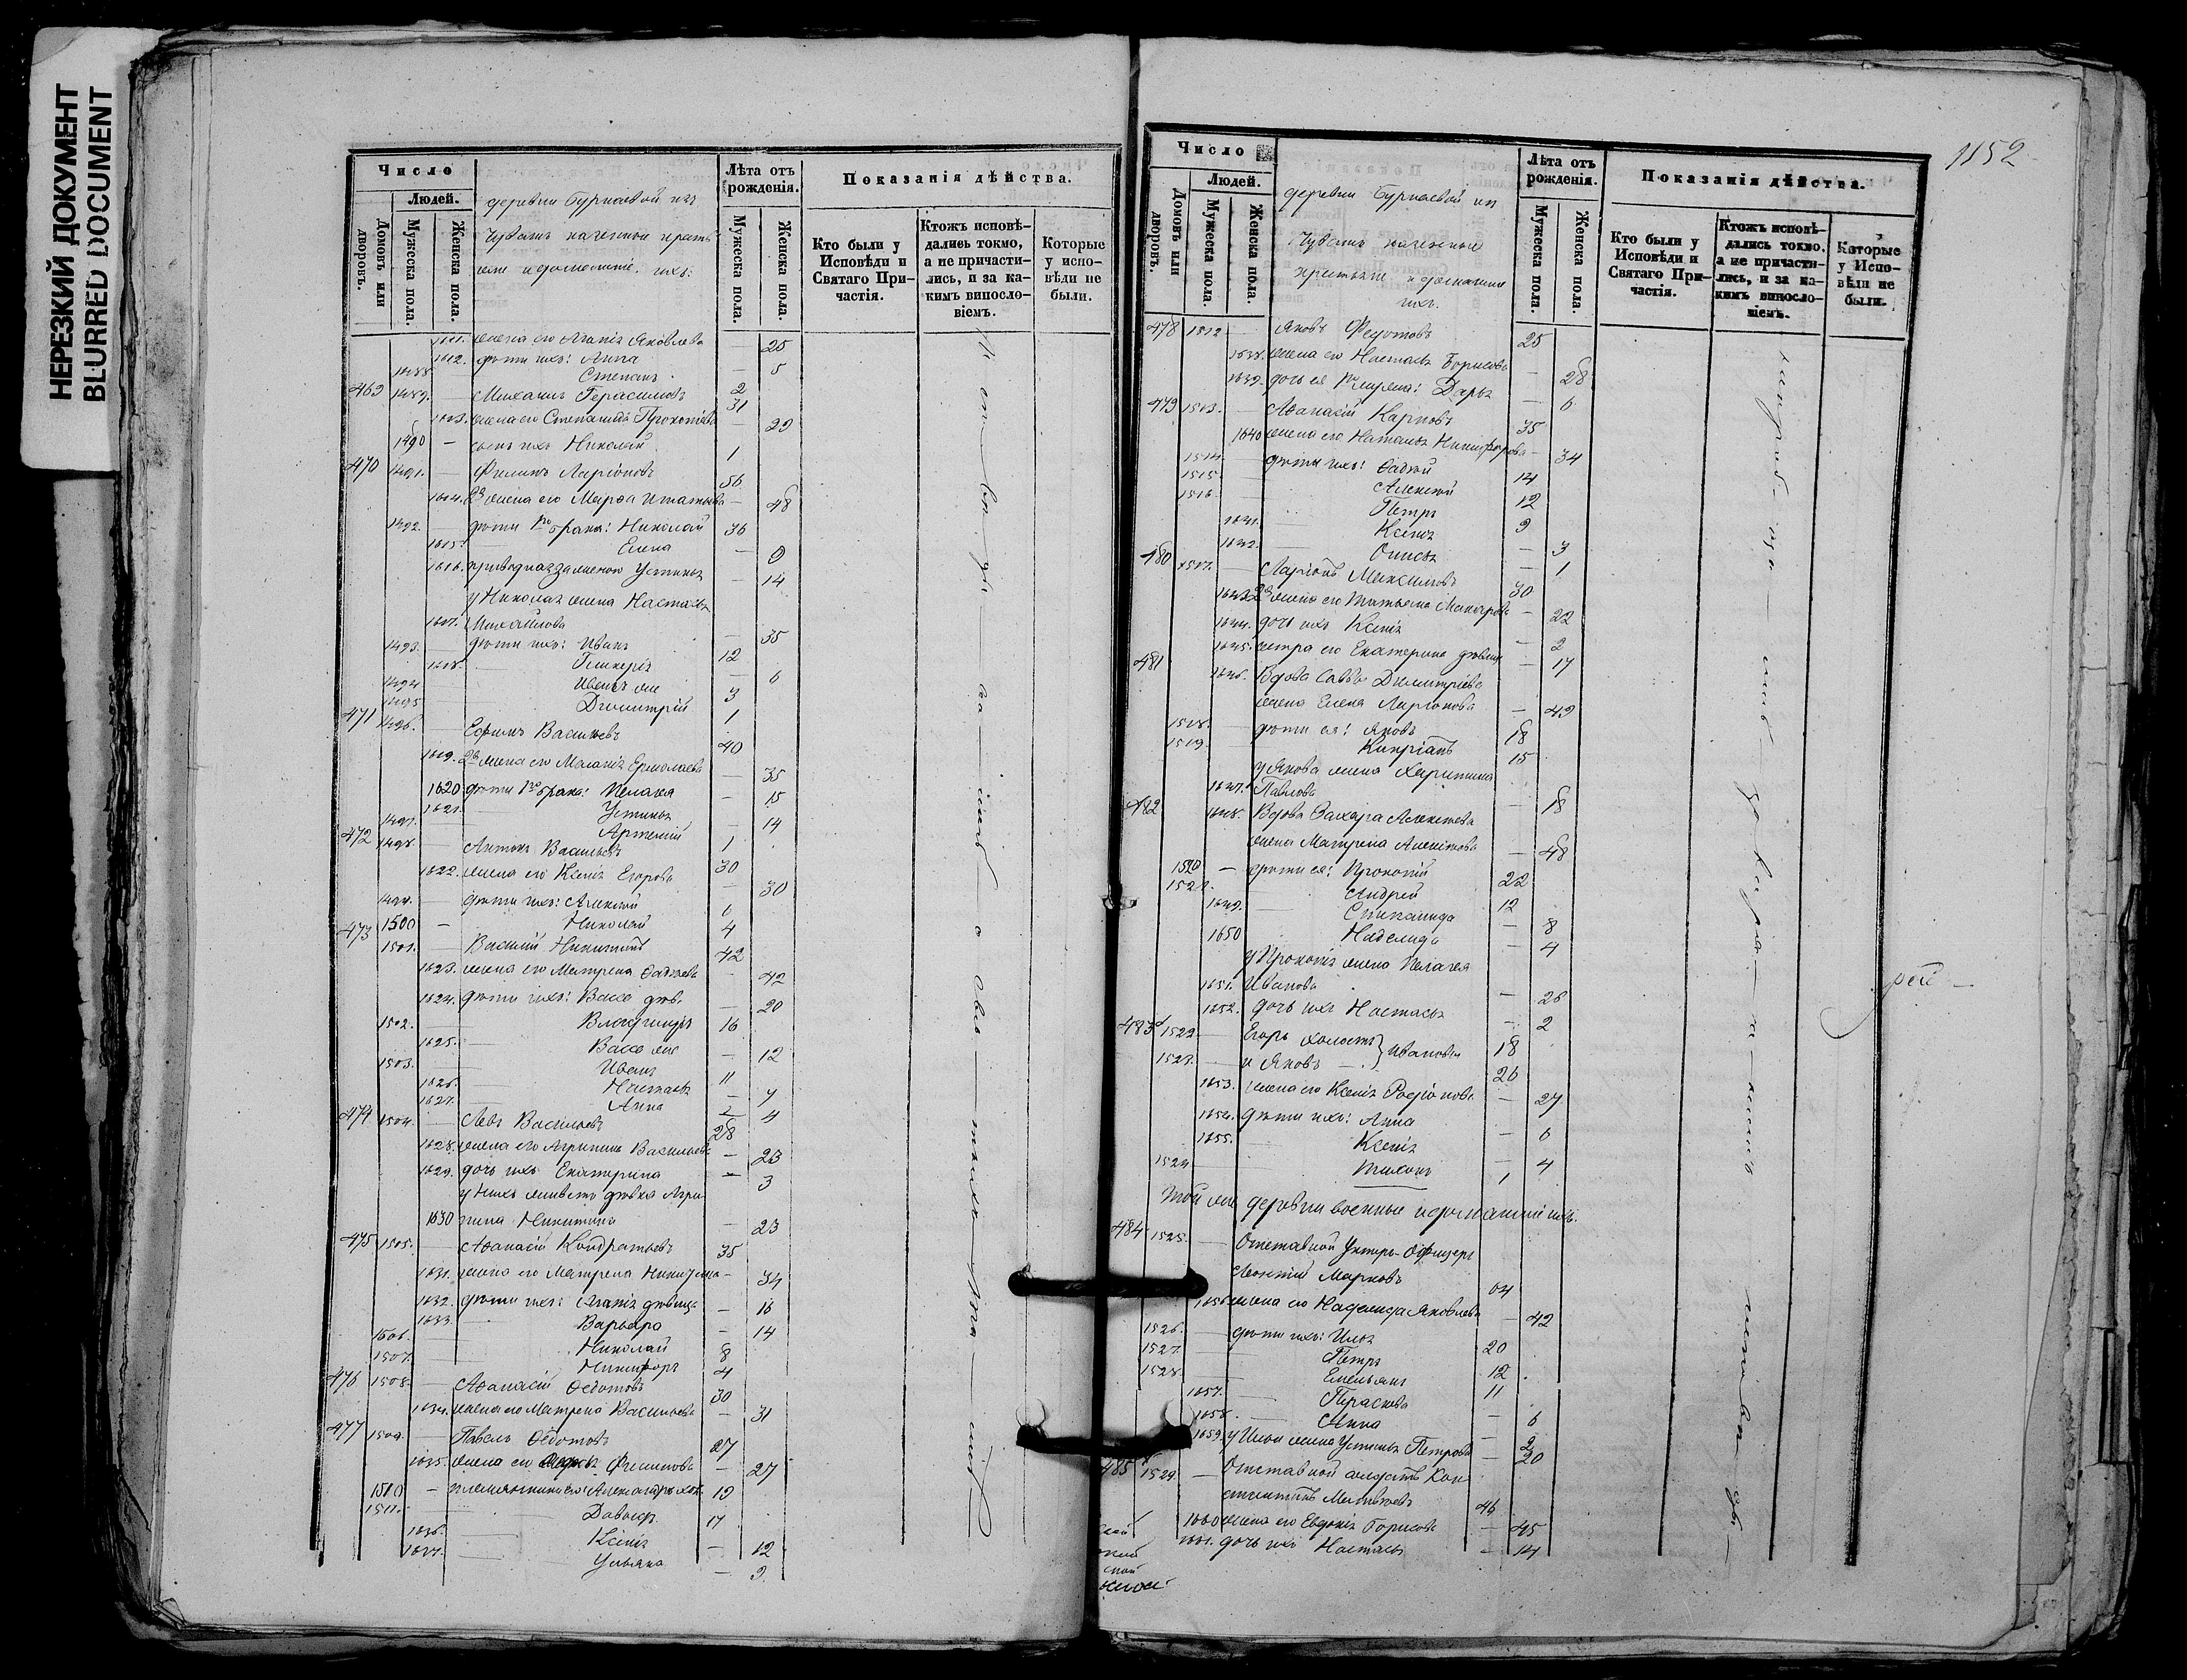 НЕРЕЗКИЙ ДОКУМЕНТ
BLURRED DOCUMENT
Число
Людей.
Домовъ или дворовъ.
Мужеска пола.
Женска пола.
деревни Бурнаевой изъ
Чувашъ казенные крестья
не и домашніе ихъ:
Лѣта отъ рожденія.
Мужеска пола.
Женска пола.
Показанія дѣйства.
Кто были у Исповѣди и Святаго Причастія.
Ктожъ исповѣдались токмо, а не причастились, и за какимъ винословіемъ.
Которые у исповѣди не были.
1611. жена его Агапія Яковлева — 25
1612. дѣти ихъ: Анна — 5
1488 Степанъ 2
469 1489. — Михаилъ Герасимовъ 31
1613. жена его Степанида Прокопіева — 29
1490 — сынъ ихъ Николай 1
470 1491. — Филипъ Ларіоновъ 56
1614. 2я жена его Марѳа Игнатьева — 48
1492. — дѣти 1го брака: Николай 36
1615. Елена — 9
1616. Устинья — 14
у Николая жена Настасья
1617. Михайлова — 35
1493. дѣти ихъ: Иванъ 12
1618. Гликерія — 6
1494 Иванъ же 3
1495 Димитрій 1
471 1496. Ефимъ Васильевъ 40
1619. 2я жена его Маланія Ермолаева — 35
1620 дѣти 1го брака: Пелагея — 15
1621. Устинья — 14
1497. Артемій 1
472 1498. — Антонъ Васильевъ 30
1622. жена его Ксенія Егорова — 30
1499. — дѣти ихъ: Алексій 6
1500 — Николай 4
473 1501. — Василій Никитинъ 42
1623. жена его Матрена Ѳадѣева — 42
1624. дѣти ихъ: Васса дѣв. — 20
1502. Владимиръ 16
1625. Васса же — 12
1503. Иванъ 11
1626. Настасья — 7
1627. Анна — 4
474 1504. — Левъ Васильевъ 28
1628. жена его Агрипина Васильева — 23
1629. дочь ихъ Екатерина — 3
у нихъ живетъ дѣвка Агри
1630 пина Никитина — 23
475 1505. — Аѳанасій Кондратьевъ 35
1631. жена его Матрена Никитина — 34
1632. дѣти ихъ: Агапія дѣвица — 16
1633. Варвара — 14
1506. Николай 8
1507. Никифоръ 4
476 1508. — Аѳанасій Ѳедотовъ 30
1634. жена его Матрена Васильева — 31
477 1509. — Павелъ Ѳедотовъ 27
1635. жена его Филипова — 27
1510 — племянники его: Александръ хол. 19
1511. Давыдъ 17
1636. Ксенія — 12
1637. Ульяна — 9
1152
Число
Людей.
Домовъ или дворовъ.
Мужеска пола.
Женска пола.
деревни Бурнаевой изъ
Чувашъ казенные
крестьяне и домашніе
ихъ.
Лѣта отъ рожденія.
Мужеска пола.
Женска пола.
Показанія дѣйства.
Кто были у Исповѣди и Святаго Причастія.
Ктожъ исповѣдались токмо, а не причастились, и за какимъ винословіемъ.
Которые у Исповѣди не были.
478 1512 — Яковъ Федотовъ 25
1638. жена его Настасья Борисова — 28
1639. дочь ея Дарья — 6
479 1513. — Аѳанасій Карповъ 35
1640 жена его Наталья Никифорова — 34
1514. — дѣти ихъ: Ѳадѣй 14
1515. Алексій 12
1516. Петръ 9
1641. Ксенія — 3
1642. Онисья — 1
480 1517. — Ларіонъ Максимовъ 30
1643. 2я жена его Татьяна Макарова — 22
1644. дочь ихъ Ксенія — 2
1645. сестра его Екатерина дѣвица — 17
481 1646. Вдова Савва Димитріева
жена Елена Ларіонова — 49
1518. дѣти ея: Яковъ 18
1519. Кипріанъ 15
у Якова жена Харитина
1647. Павлова — 18
482 1648. Вдова Захара Алексѣева
жена Матрена Алексѣева — 48
1520 — дѣти ея: Прокопій 22
1521. Андрей 12
1649. Степанида — 8
1650 Надежда — 4
у Прокопія жена Пелагея
1651. Иванова — 26
1652. дочь ихъ Настасья — 2
483 1522 — Егоръ холостъ 18
1523. — и Яковъ — } Ивановы 26
1653. жена его Ксенія Родіонова — 27
1654. дѣти ихъ: Анна — 6
1655. Ксенія — 4
1524 Тихонъ 1
Той же деревни военные и домашніе ихъ.
484 1525. — Отставной Унтеръ-Офицеръ
Леонтій Марковъ 64
1656 жена его Надежда Яковлева — 42
1526. — дѣти ихъ: Илья 20
1527. Петръ 12
1528. Емельянъ 11
1657. Параскева — 6
1658. Анна — 2
1659. у Ильи жена Устинья Петрова — 20
485 1529. — Отставной солдатъ Кон
стантинъ Матвѣевъ 46
1660 жена его Евдокія Борисова — 45
1661. дочь ихъ Настасья — 14
рей